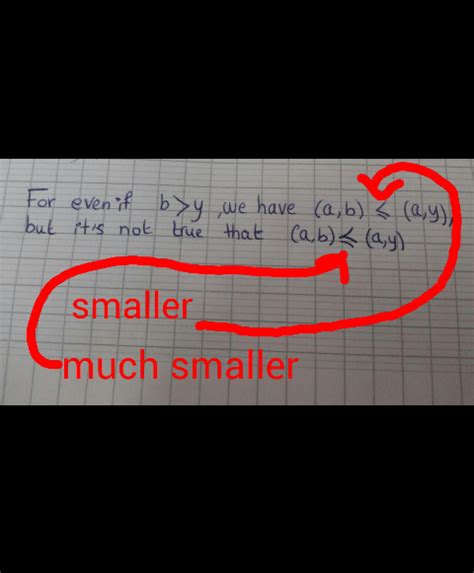 For even if b>y ,we have (a,b) ⩽ (a,y),
but it's not true that (a,b) ⩽ (a,y)
smaller
much smaller